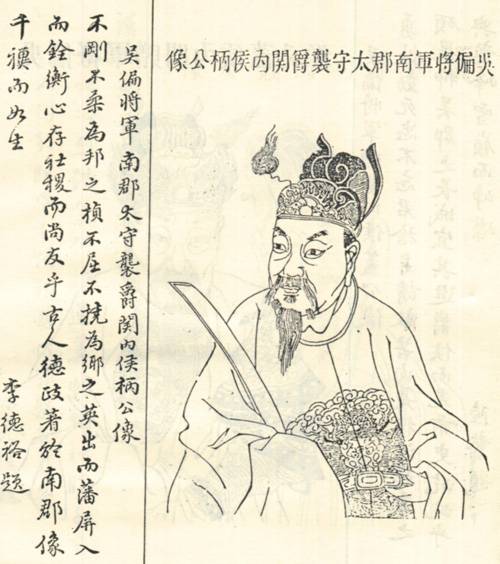 吳偏將軍南郡太守襲爵関內侯柄公像
吳偏將軍南郡太守襲爵関內侯柄公像
不剛不柔為邦之楨不屈不撓為鄉之英出而藩屏入
而銓衡心存社稷而尚友乎古人德政著於南郡像
千禩而如生
李德裕題